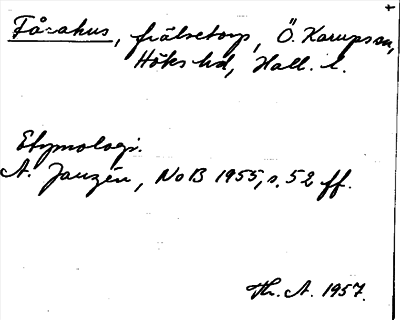 Fårahus, frälsetorp, Ö. Karups sn,
Höks hd, Hall. l.
Etymologi.
A. Janzén, NoB 1955, s. 52 ff.
Th. A. 1957.